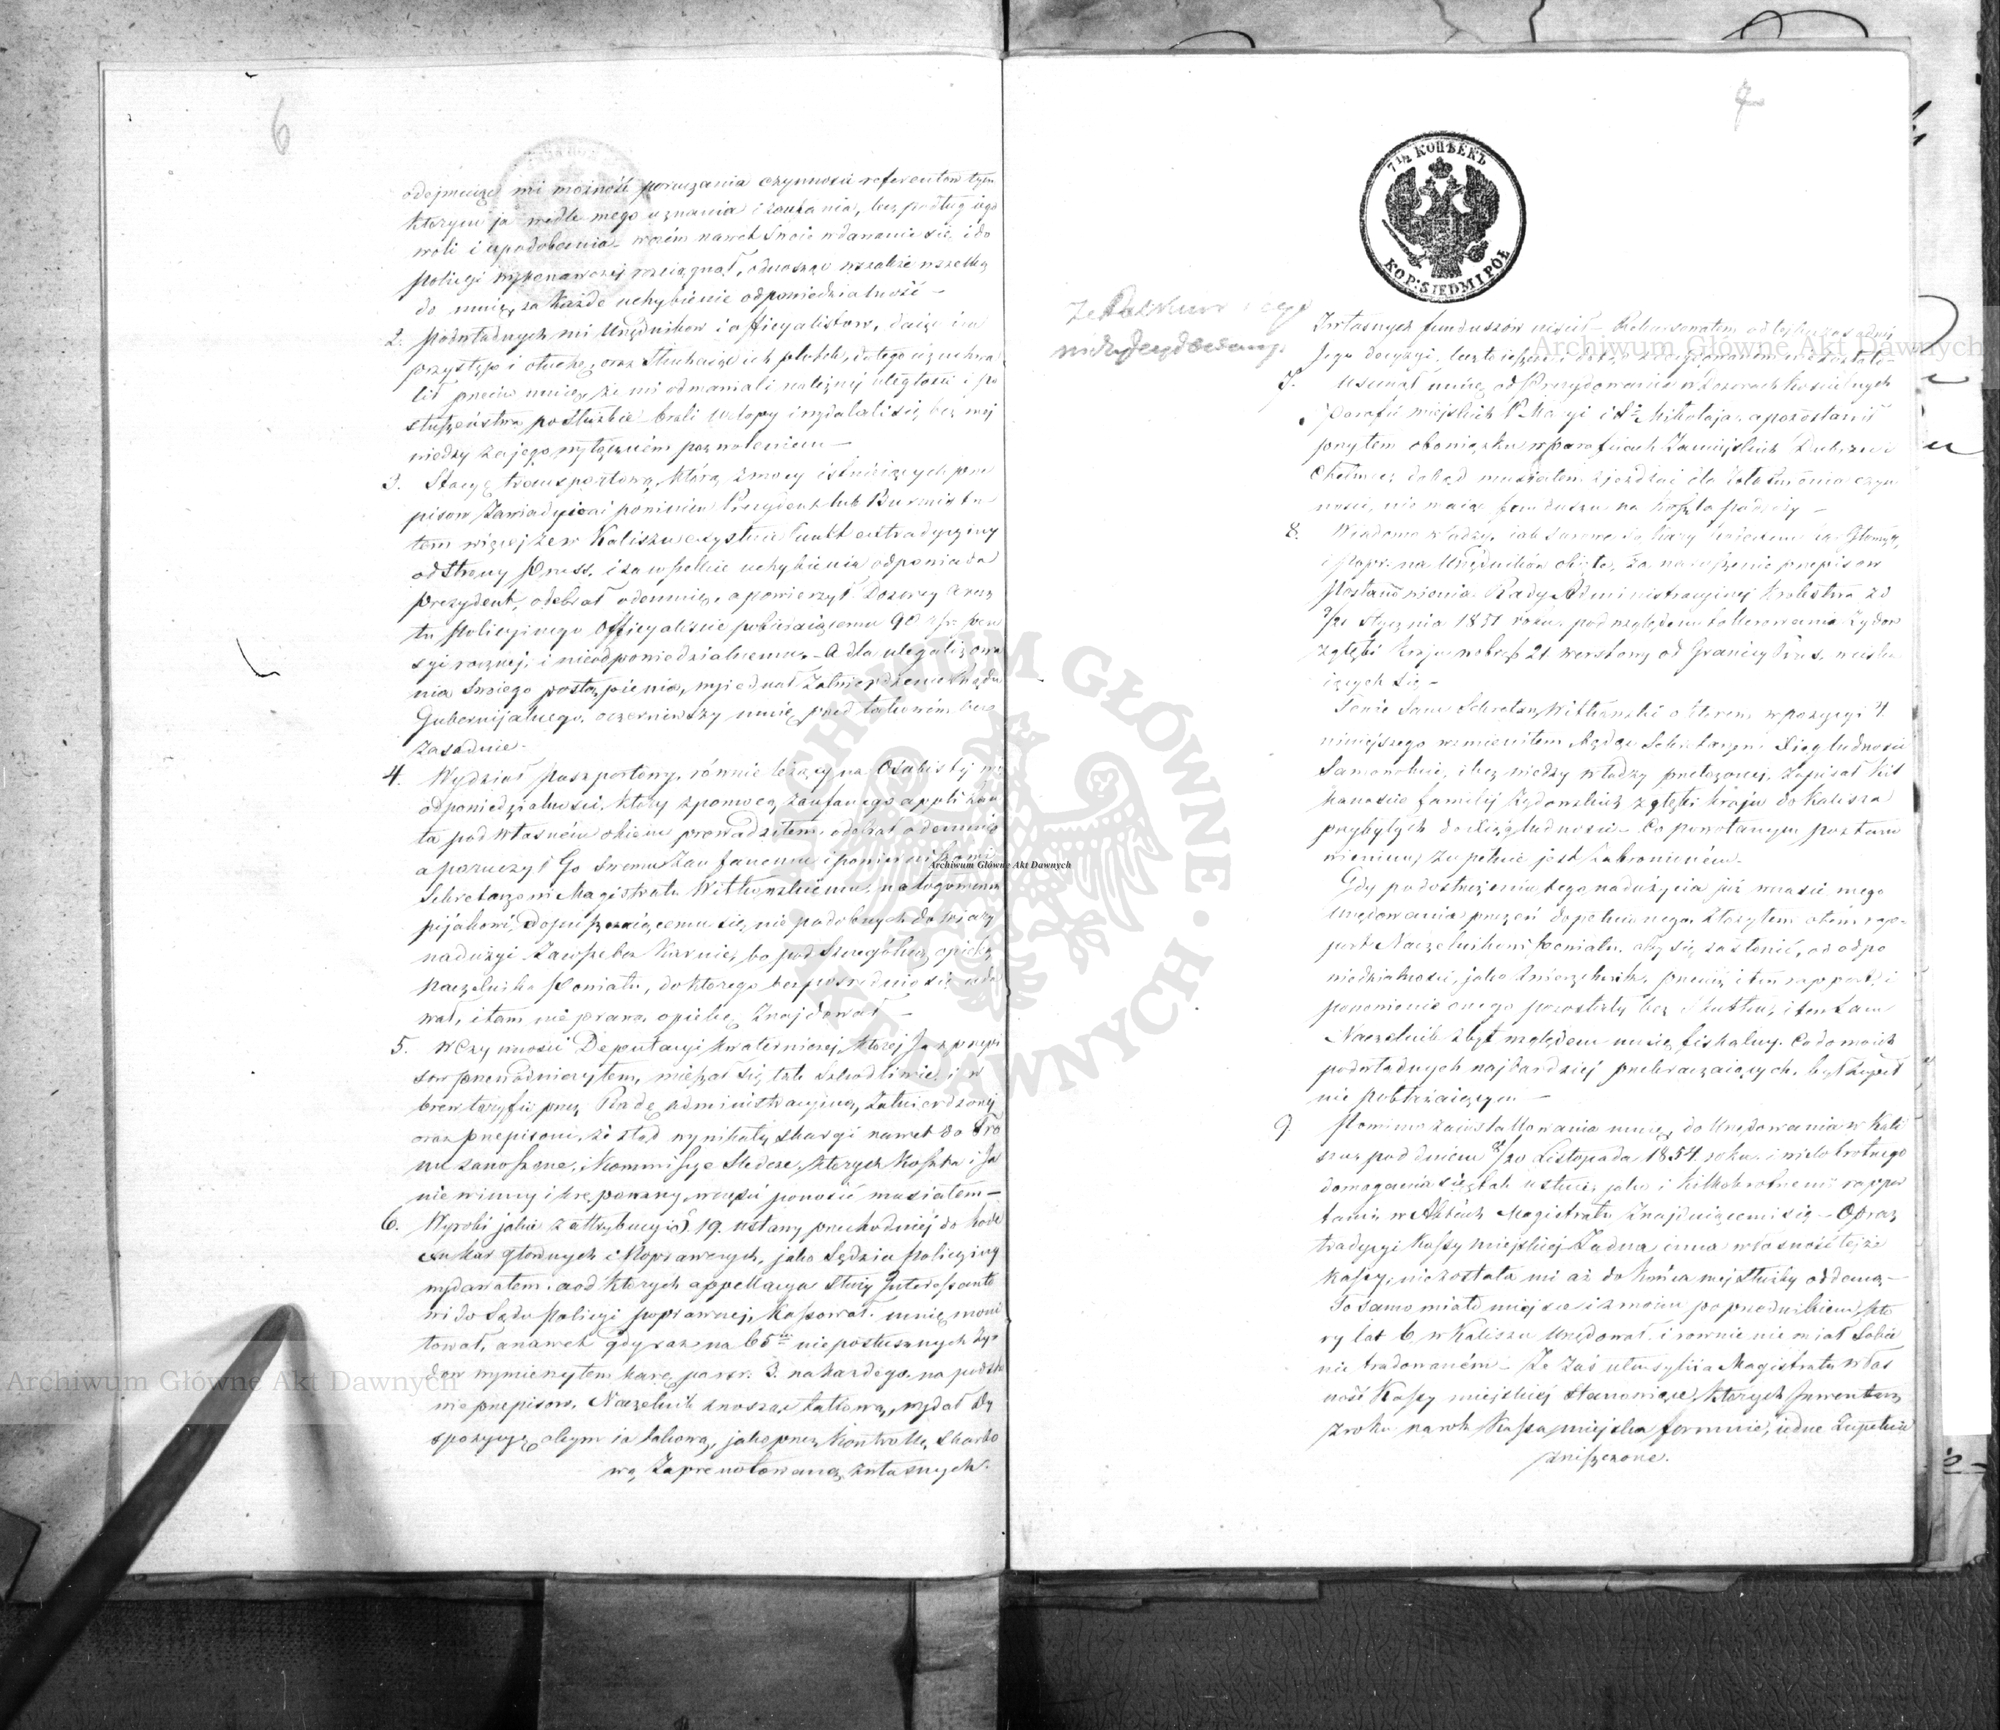 6
odejmując mi możność poruczania czynności referentom tym
którym ja wedle mego uznania i zaufania, lecz podług jego
woli i upodobania – wozem nawet Swoie wdawanie się i do
Policyi wykonawczej rozciągnął, odnosząc wszakże wszelką
do mnie, za każde uchybienie odpowiedzialność –
2. Podwładnych mi Urzędników i officyalistow, daiąc im
przystęp i otuchę, oraz słuchaiąc ich plotek, do tego
przeciw mnie, że mi odmawiali należnej uległości i po
słuszeństwa po Służbie brali Urlopy i wydalali się bez mej
wiedzy za jego wyłącznem pozwoleniem –
3. Stacyę transportową, którą z mocy istnieiących prze
pisow Zawiadywać powinien Prezydent lub Burmistrz
tem więcej że w Kaliszu exystuie Punkt extradycyiny
od Strony Pruss, i za wszelkie uchybienia odpowiada
Prezydent, odebrał odemnie, a powierzył Dozorcy Aresz
tu Policyinego Officyaliście pobieraiącemu 90 rsr. pen
syi rocznej, i nieodpowiedzialnemu. – A dla ulegalizowa
nia Swoiego postąpienia, wyiednał Zatwierdzenie Rządu
Gubernijalnego, oczerniwszy mnie przed takowém bez
zasadnie.
4. Wydział Paszportowy, równie leżący na Osobistej mej
odpowiedzialności, który z pomocą zaufanego applikan
ta pod własném okiem prowadziłem, odebrał odemnie
a poruczył Go Swemu Zaufanemu i powiernikowi
Sekretarzowi Magistratu Witkowskiemu, nałogowemu
pijakowi, Dopuszczaiącemu się, nie podobnych do wiary
nadużyć Zawsze bez Karnie, bo pod Szczególną opieką
Naczelnika Powiatu, do którego bezpośrednio się uda
wał, i tam nie prawą opiekę Znajdował –
5. W Czynności Deputacyi kwaterniczej, której Ja z przepi
sow przewodniczyłem, mięszał się tak Szkodliwie, i w
brew taryfie przez Radę Administracyiną, Zatwierdzonej
oraz przepisom, że ztąd wynikały skargi nawet do Tro
nu zanoszone, i Kommissye Śledcze, których Koszta i Ja
niewinny i krępowany, w części ponosić musiałem –
6. Wyroki jakie z attrybucyi § 19. ustawy przechodniej do kode
xu kar głównych i Poprawczych, jako Sędzia Policyiny
wydawałem, a od których appellacya Służy Interessanto
wi do Sądu Policyi Poprawczej, Kassował, mnie moni
tował, a nawet gdy raz na 65ciu nieposłusznych Ży
dow wymierzyłem karę po rsr. 3. na każdego, na podsta
wie przepisow, Naczelnik znosząc takową, wydał Dy
spozycyę abym ia takową, jako przez Kontrolę Skarbo
wą Zaprenotowaną, z własnych
7
7 1/2 КОПѢЕКЪ
KOP: SIEDM I PÓŁ
Z własnych funduszów uiścił – Rekursowałem od tej
Jego decyzyi,
7. Usunął mnie od Prezydowania w Dozorach Kościelnych
Parafii miejskich P. Maryi i Sgo Mikołaja, a pozostawił
przytem obowiązku w parafiach Zamiejskich Dobrzec i
Chełmce, dokąd musiałem zjeżdżać dla dopełnienia czyn
ności, nie maiąc funduszu na koszta podróży –
8. Wiadomo Władzy, iak surowe są kary kodexem kar Głównych
i Popr. na Urzędników objęte, za naruszenie przepisow
Postanowienia Rady Administracyinej Królestwa z d
9/21 Stycznia 1851 roku, pod względem tollerowania Żydów
z głębi kraju w obręb 21 werstowy od Granicy Prus, wciska
iących się –
Tenże Sam Sekretarz Witkowski o którem w pozycyi 4
niniejszego wzmieniłem, będąc Sekretarzem Xiąg ludności
Samowolnie, i bez wiedzy władzy przełożonej, Zapisał kil
kanaście familij Żydowskich z głębi kraju do Kalisza
przybyłych do Xiąg ludności – Co powołanym postano
wieniem, Zupełnie jest Zabronionem –
Gdy po dostrzeżeniu tego nadużycia już w czasie mego
Urzędowania przezeń dopełnionego, Złożyłem o tém rap-
port Naczelnikowi Powiatu, aby się zasłonić, od odpo
wiedzialności, jako Zwierzchnik, przecież i ten rapport, i
ponowienie onego pozostały bez Skutku, i ten Sam
Naczelnik zbyt względem mnie fiskalny, co do moich
podwładnych najbardziej przekraczaiących, był Zupeł
nie pobłażaiącym –
9. Pomimo zainstallowania mnie, do Urzędowania w Kali
szu pod dniem 8/20 Listopada 1854 roku, i wielokrotnego
domagania się, tak ustnie, jako i kilkokrotnemi rappor
tami, w Aktach Magistratu Znajduiącemi się – Oprócz
tradycyi Kassy miejskiej Żadna inna własność tejże
Kassy, nie została mi aż do końca mej Służby oddaną –
To Samo miało miejsce i z moim poprzednikiem, któ
ry lat 6 w Kaliszu Urzędował, i równie nie miał Sobie
nic tradowaném – Że zaś utensylia Magistratu włas
ność Kassy miejskiej Stanowiące, których Inwentarz
z roku na rok Kassa miejska formuie, iedne Zupełnie
zniszczone.
Archiwum Główne Akt Dawnych
Archiwum Główne Akt Dawnych
Archiwum Główne Akt Dawnych
ARCHIWUM GŁÓWNE · AKT DAWNYCH ·